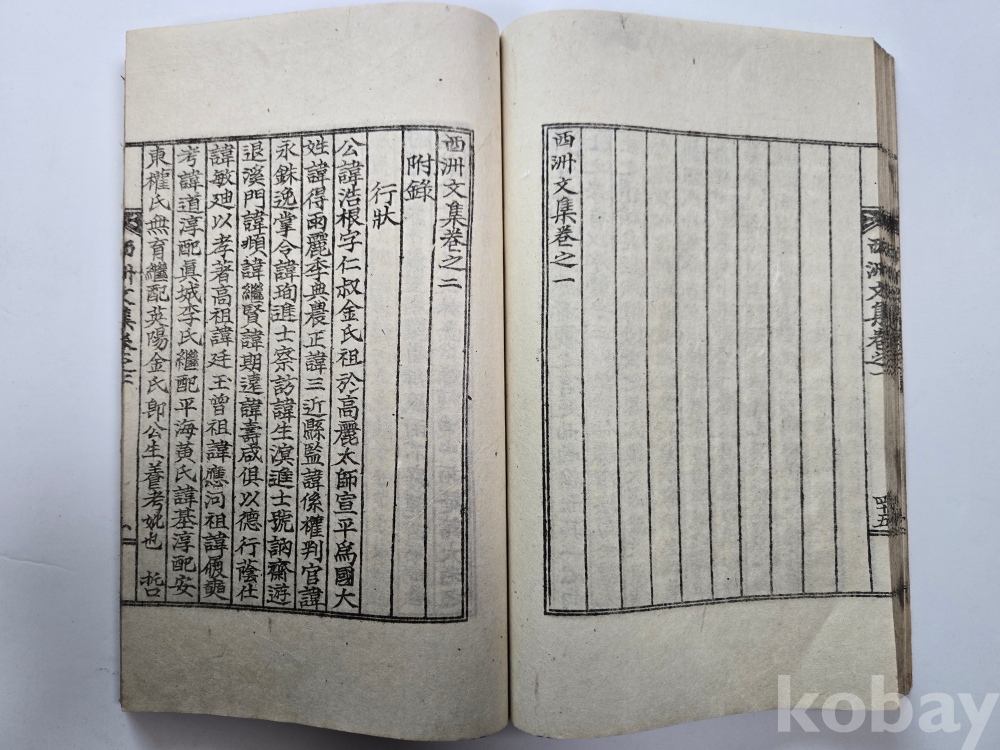 西洲文集卷之一
四十五
西洲文集卷之一
西洲文集卷之二
附錄
行狀
公諱浩根字仁叔金氏祖於高麗太師宣平爲國大
姓諱得雨麗季典農正諱三近縣監諱係權判官諱
永銖逸掌令諱珣進士察訪諱生溟進士號訥齋游
退溪門諱順諱繼賢諱期遠諱壽咸俱以德行蔭仕
諱敏廸以孝著高祖諱廷玉曾祖諱應河祖諱履
考諱道淳配眞城李氏繼配平海黃氏諱基淳配安
東權氏無育繼配英陽金氏卽公生養考妣也
西洲文集卷之二
kobay